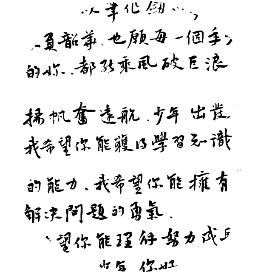 以筆化劍
負韶華,也願每一個手
的你,都能乘風破巨浪
揚帆奮遠航,少年出發
我希望你能獲得學習知識
的能力,我希望你能擁有
解決問題的勇氣,
望你能理得努力成
少年你好